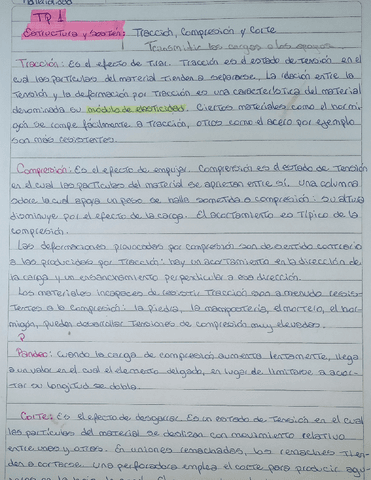 TP 1
Estructura y Sosten: Tracción, Compresión y Corte
Transmitir las cargas a los apoyos
Tracción: Es el efecto de tirar. Tracción es el estado de tensión en el
cual las partículas del material tienden a separarse. La relación entre la
Tensión y la deformación por tracción es una característica del material
denominada su módulo de elasticidad. Ciertos materiales como el hormi-
gón se rompe fácilmente a tracción, otros como el acero por ejemplo
son más resistentes.
Compresión: Es el efecto de empujar. Compresión es el estado de Tensión
en el cual las partículas del material se aprietan entre sí. Una columna
sobre la cual apoya un peso se halla sometida a compresión: su altura
disminuye por el efecto de la carga. El acortamiento es típico de la
compresión.
Las deformaciones provocadas por compresión son de sentido contrario
a las producidas por Tracción: hay un acortamiento en la dirección de
la carga y un ensanchamiento perpendicular a esa dirección.
Los materiales incapaces de resistir Tracción son a menudo resis-
tentes a la compresión: la piedra, la mampostería, el mortero, el hor-
migón, pueden desarrollar Tensiones de compresión muy elevadas.
P
Pandeo: Cuando la carga de compresión aumenta lentamente, llega
a un valor en el cual el elemento delgado, en lugar de limitarse a acor-
tar su longitud se dobla.
Corte: Es el efecto de desgarrar. Es un estado de Tensión en el cual
las partículas del material se deslizan con movimiento relativo
entre unas y otras. En uniones remachadas, los remaches tien-
den a cortarse. Una perforadora emplea el corte para producir agu-